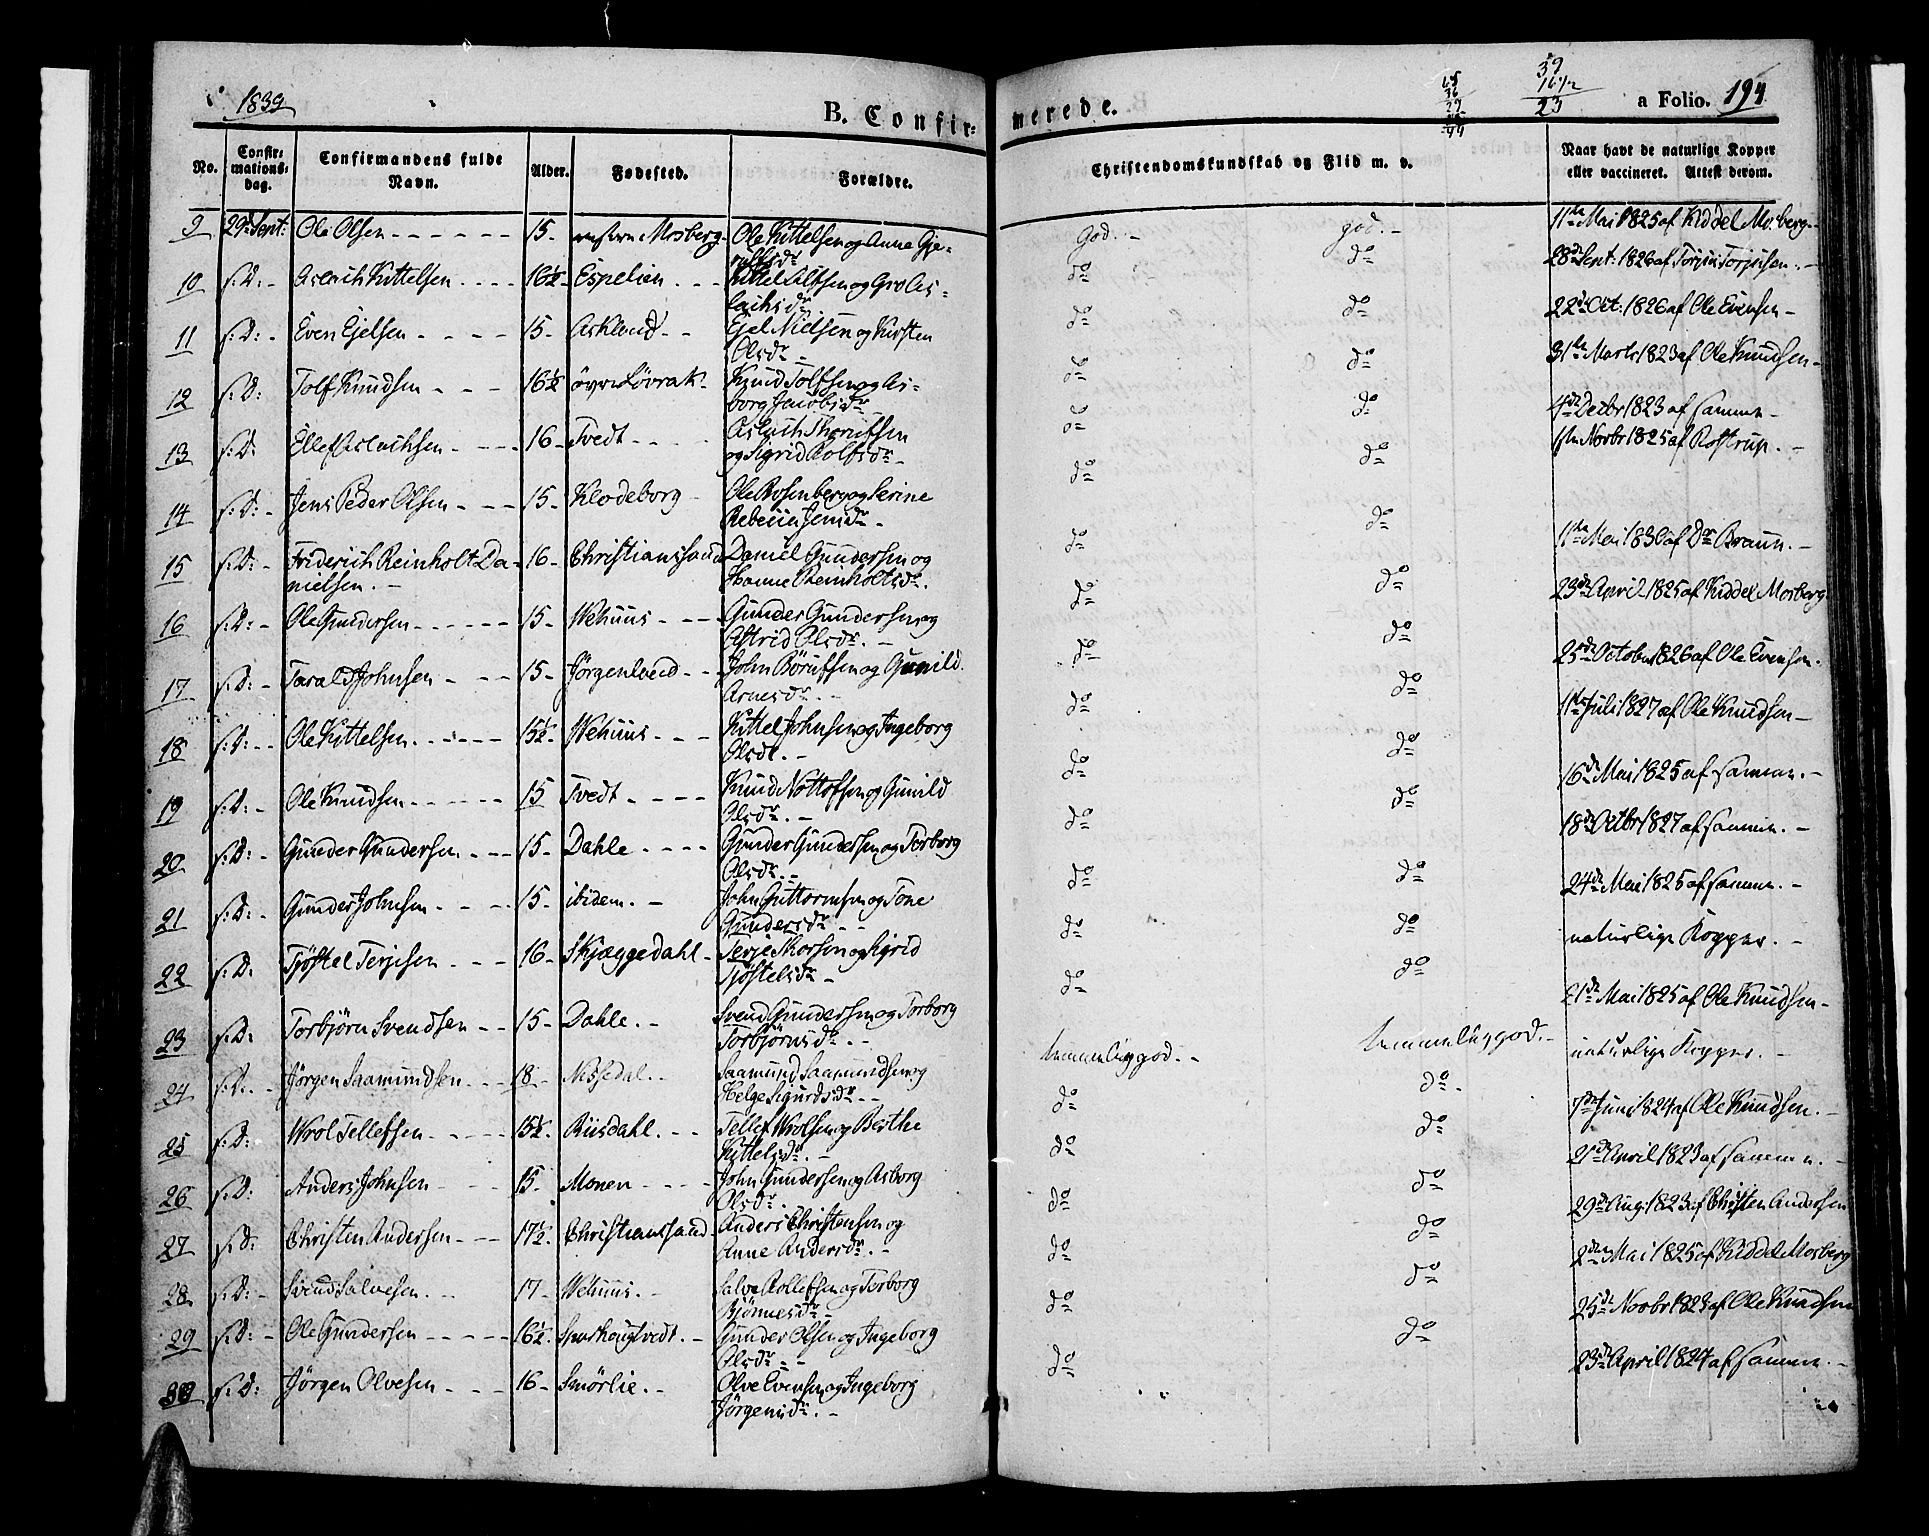 1839
B. Confir-
merede.
65
36
27
44
39
16 1/2
23
a Folio. 194
No.
Confir-
mations-
dag.
Confirmandens fulde
Navn.
Alder.
Fødested.
Forældre.
Christendomskundskab og Flid m. v.
Naar havt de naturlige Kopper
eller vaccineret. Attest derom.
9 29de Sept: Ole Olsen 15 Mosberg Ole Kittelsen og Anne Gje- god. god. 11te Mai 1825 af Kiddel Mosberg
10 s: D: Aslach Kittelsen 16½ Espelien Kittel Alfsen og Gro As- do do 28de Sept: 1826 af Torjus Torjusen.
lachsdr
11 s: D: Even Ejelsen 15 Askland Ejel Nielsen og Kirsten do do 22de Oct: 1826 af Ole Evensen
Olsdr
12 s: D: Tolf Knudsen 16½ øvre Løvrak Knud Tolfsen og As- do do 31te Marts 1823 af Ole Knudsen
borg Jacobsdr
13 s: D: Ellef Aslachsen 16 Tvedt Aslach Thorufsen do do 4de Decbr 1823 af samme
og Sigrid Rolfsdr
14 s: D: Jens Peder Olsen 15 Klodeborg Ole Rosenberg og Serine do do 1ste Novbr 1825 af Rostrup.
Rebecca Jensdr
15 s: D: Friderich Reinholt Da- 16 Christianssand Daniel Gundersen og do do 11te Mai 1830 af Dr Braun.
nielsen. Hanne Reinholtsdr.
16 s: D: Ole Gundersen 15 Wehuus Gunder Gundersen og do do 23de April 1825 af Kiddel Mosberg
Astrid Olsdr.
17 s: D: Tarald Johnsen 15 Jørgenlund John Børufsen og Gunild do do 25de October 1826 af Ole Evensen.
Arnesdr.
18 s: D: Ole Kittelsen 15½ Wehuus Kittel Johnsen og Ingeborg do do 11te Juli 1827 af Ole Knudsen
Olsdr.
19 s: D: Ole Knudsen 15 Tvedt Knud Nottofsen og Gunild do do 16de Mai 1825 af samme.
Olsdr.
20 s: D: Gunder Gundersen 15 Dahle Gunder Gundersen og Torborg do do 18de Octbr 1827 af samme.
Olsdr.
21 s: D: Gunder Johnsen 15 ibidem. John Guttormsen og Tone do do 24de Mai 1825 af samme.
Gundersdr
22 s: D: Tjøstel Terjesen 16 Skjæggedahl Terje Thorsen og Sigrid do do naturlige Kopper.
Tjøstelsdr
23 s: D: Torbjørn Svendsen 15 Dahle. Svend Gundersen og Torborg do do 21de Mai 1825 af Ole Knudsen
Torbjørnsdr.
24 s: D: Jørgen Saamundsen 18 Nissedal. Saamund Saamundsen og temmelig god. temmelig god. naturlige Kopper.
Helge Sigurdsdr
25 s: D: Wrol Tellefsen 15½ Riisdahl. Tellef Wrolsen og Berthe do do 7de Juni 1824 af Ole Knudsen.
Kittelsdr.
26 s: D: Anders Johnsen 15 Monen John Gundersen og Asborg do do 21de April 1823 af samme.
Olsdr.
27 s: D: Christen Andersen 17½ Christianssand Anders Christensen og do do 29de Aug: 1823 af Christen Andersen
Anne Andersdr.
28 s: D: Svend Salvesen 17 Wehuus. Salve Rollefsen og Torborg do do 2den Mai 1825 af Kiddel Mosberg
Bjønnesdr
29 s: D: Ole Gundersen 16½ Gunder Olsen og Ingeborg do do 25de Novbr 1823 af Ole Knudsen
Olsdr
30 s: D: Jørgen Olvesen 16 Smørlie. Olve Evensen og Ingeborg do do 23de April 1827 af samme.
Jørgensdr.